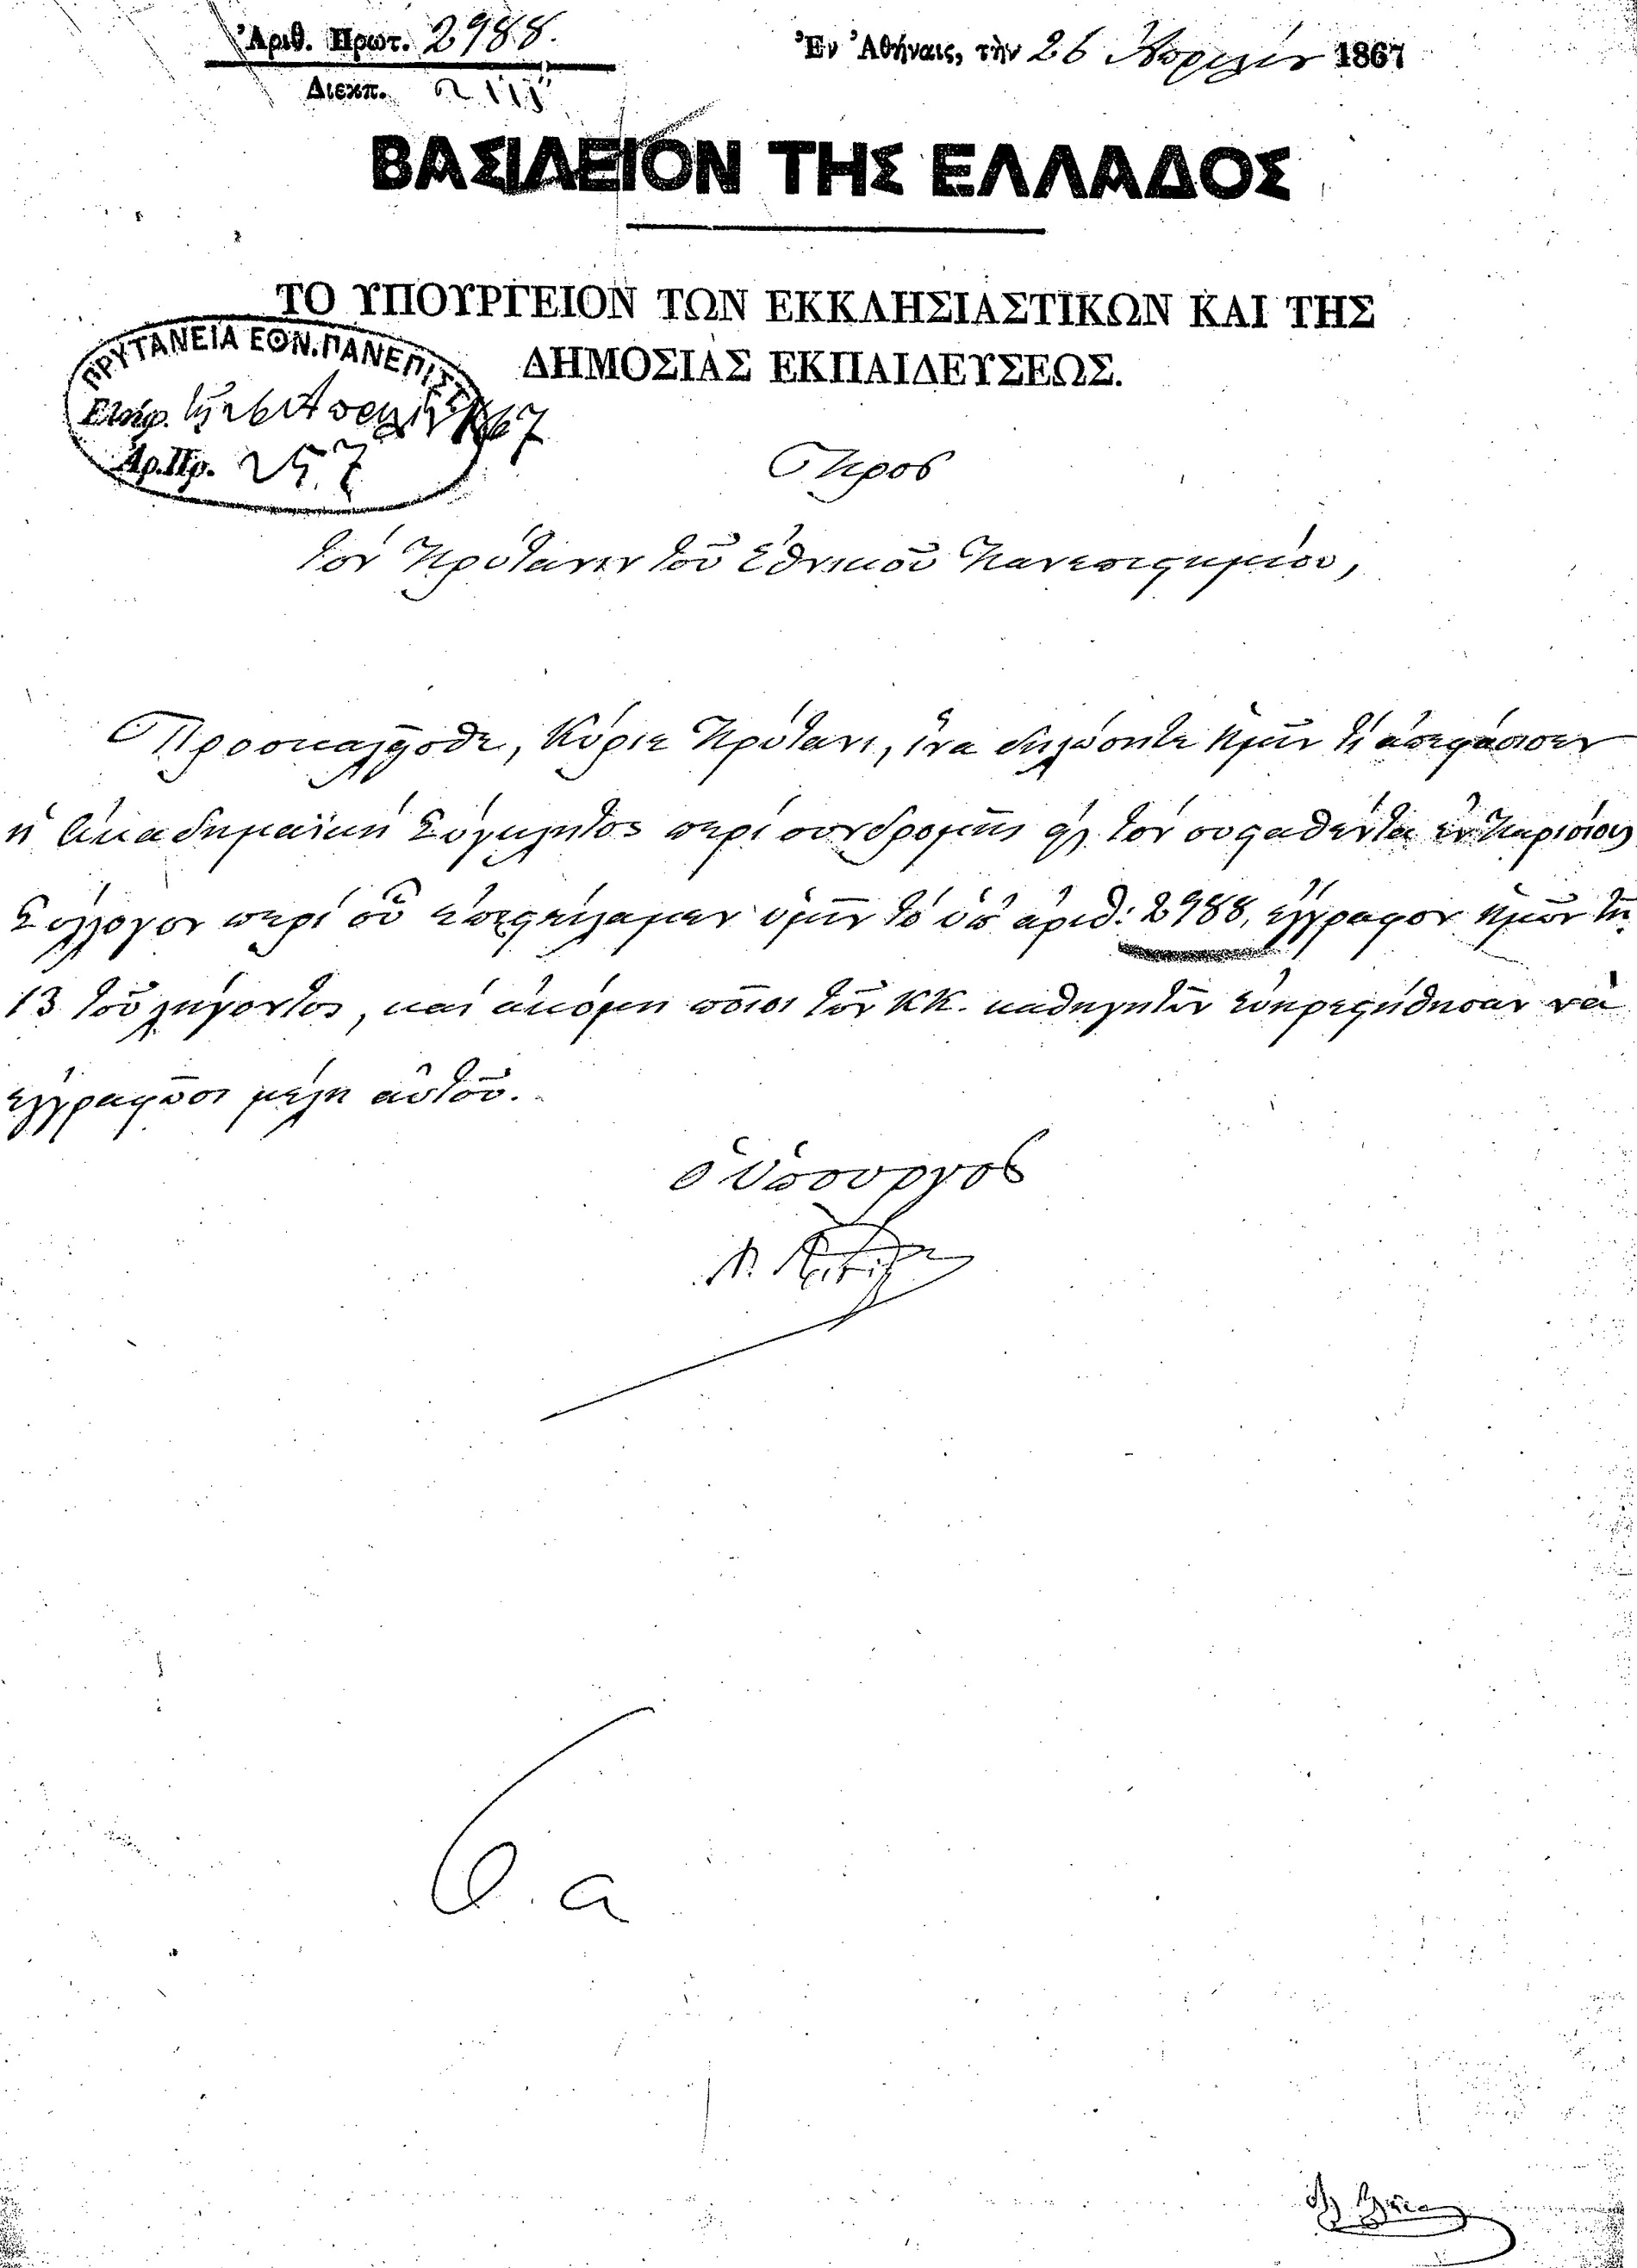 Ἀριθ. Πρωτ. 2988.
Ἐν Ἀθήναις, τὴν 26 Ἀπριλίου 1867
Διεκπ.
ΒΑΣΙΛΕΙΟΝ ΤΗΣ ΕΛΛΑΔΟΣ
ΤΟ ΥΠΟΥΡΓΕΙΟΝ ΤΩΝ ΕΚΚΛΗΣΙΑΣΤΙΚΩΝ ΚΑΙ ΤΗΣ
ΔΗΜΟΣΙΑΣ ΕΚΠΑΙΔΕΥΣΕΩΣ.
ΠΡΥΤΑΝΕΙΑ ΕΘΝ. ΠΑΝΕΠΙΣΤ
Εἰσήχ. τῇ 26 Ἀπριλίου 1867
Ἀρ. Πρ. 257
Πρὸς
τὸν Πρύτανιν τοῦ Ἐθνικοῦ Πανεπιστημίου,
Προσκαλεῖσθε, Κύριε Πρύτανι, ἵνα δηλώσητε ἡμῖν τί ἀπεφάσισεν
ἡ Ἀκαδημαϊκὴ Σύγκλητος περὶ συνδρομῆς εἰς τὸν συσταθέντα ἐν Παρισίοις
Σύλλογον περὶ οὗ ἐπεστείλαμεν ὑμῖν τὸ ὑπ' ἀριθ: 2988, ἔγγραφον ἡμῶν τῇ
13 τοῦ λήγοντος, καὶ ἀκόμη ποῖοι τῶν ΚΚ. καθηγητῶν εὐηρεστήθησαν νὰ
ἐγγραφῶσι μέλη αὐτοῦ.
ὁ Ὑπουργὸς